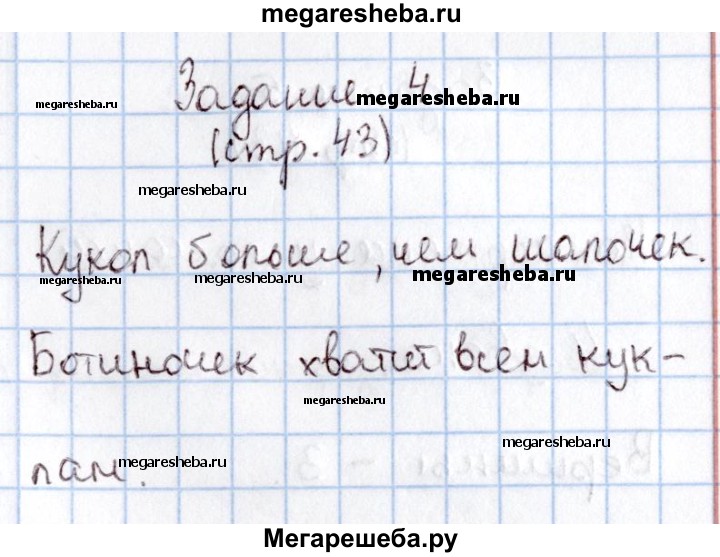 megaresheba.ru
Задание 4
megaresheba.ru megaresheba.ru
(стр. 43)
megaresheba.ru
Кукол больше, чем шапочек.
megaresheba.ru megaresheba.ru megaresheba.ru
Ботиночек хватит всем кук-
megaresheba.ru
megaresheba.ru
лам.
megaresheba.ru
Мегарешеба.ру